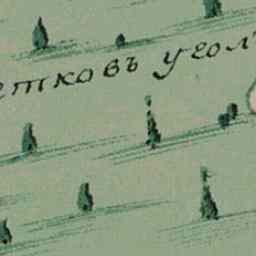 етковъ угол